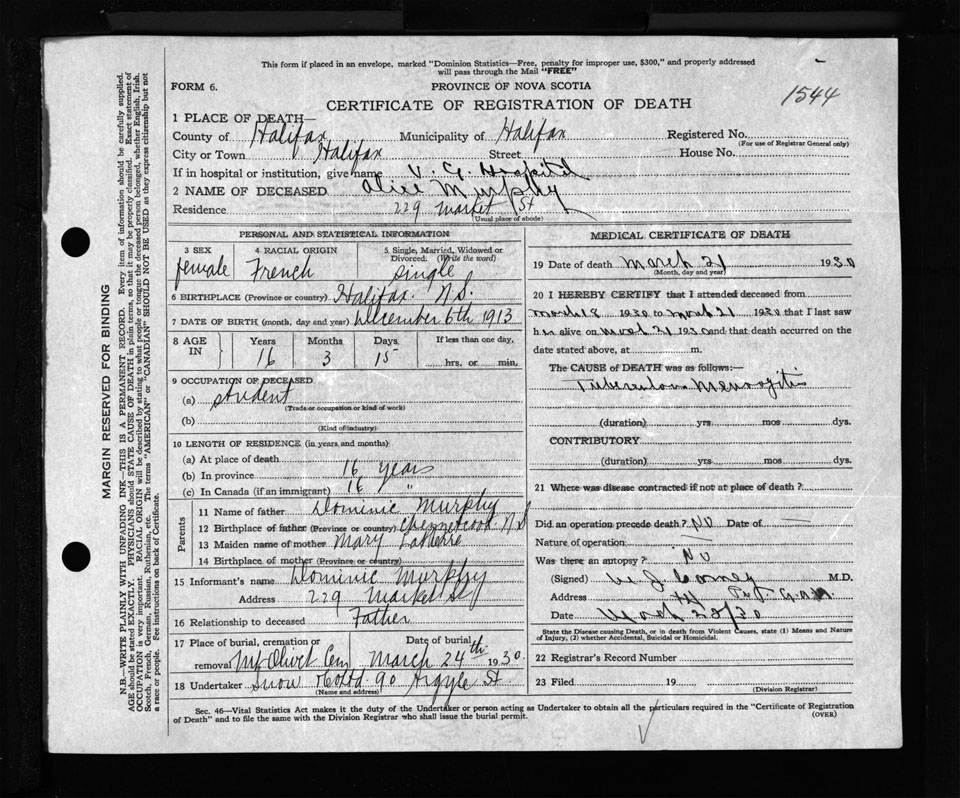 This form if placed in an envelope, marked "Dominion Statistics—Free, penalty for improper use, $300," and properly addressed
will pass through the Mail "FREE"
FORM 6.
PROVINCE OF NOVA SCOTIA
1544
CERTIFICATE OF REGISTRATION OF DEATH
1 PLACE OF DEATH—
County of Halifax Municipality of Halifax Registered No.
(For use of Registrar General only)
City or Town Halifax Street House No.
If in hospital or institution, give name V. G. Hospital
2 NAME OF DECEASED Alice Murphy
Residence 229 Market St
(Usual place of abode)
PERSONAL AND STATISTICAL INFORMATION
3 SEX 4 RACIAL ORIGIN 5 Single, Married, Widowed or
Divorced. (Write the word)
female French single
6 BIRTHPLACE (Province or country) Halifax N.S.
7 DATE OF BIRTH (month, day and year) December 6th 1913
8 AGE IN Years Months Days If less than one day,
16 3 15 hrs. or min.
9 OCCUPATION OF DECEASED
(a) student
(Trade or occupation or kind of work)
(b)
(Kind of industry)
10 LENGTH OF RESIDENCE (in years and months)
(a) At place of death
(b) In province 16 years
(c) In Canada (if an immigrant) 16 "
Parents
11 Name of father Dominic Murphy
12 Birthplace of father (Province or country) N.S
13 Maiden name of mother Mary
14 Birthplace of mother (Province or country)
15 Informant's name Dominic Murphy
Address 229 Market St
16 Relationship to deceased Father
17 Place of burial, cremation or Date of burial
removal Mt Olivet Cem March 24th 1930.
18 Undertaker Snow & Co Ltd. 90 Argyle St
(Name and address)
MEDICAL CERTIFICATE OF DEATH
19 Date of death March 21 1930
(Month, day and year)
20 I HEREBY CERTIFY that I attended deceased from
March 8 1930 to March 21 1930 that I last saw
her alive on March 21 1930 and that death occurred on the
date stated above, at m.
The CAUSE of DEATH was as follows:—
Tuberculous Meningitis
(duration) yrs. mos. dys.
CONTRIBUTORY
(duration) yrs. mos. dys.
21 Where was disease contracted if not at place of death?
Did an operation precede death? No Date of —
Nature of operation —
Was there an autopsy? No
(Signed) M.D.
Address
Date March 28/30
State the Disease causing Death, or in death from Violent Causes, state (1) Means and Nature
of Injury, (2) whether Accidental, Suicidal or Homicidal.
22 Registrar's Record Number
23 Filed 19
(Division Registrar)
Sec. 46—Vital Statistics Act makes it the duty of the Undertaker or person acting as Undertaker to obtain all the particulars required in the "Certificate of Registration
of Death" and to file the same with the Division Registrar who shall issue the burial permit.
(OVER)
MARGIN RESERVED FOR BINDING
N.B.—WRITE PLAINLY WITH UNFADING INK—THIS IS A PERMANENT RECORD. Every item of information should be carefully supplied.
AGE should be stated EXACTLY. PHYSICIANS should STATE CAUSE OF DEATH in plain terms, so that it may be properly classified. Exact statement of
OCCUPATION is very important. RACIAL ORIGIN will be described by stating to what people or tongue the deceased person belonged, whether English, Irish,
Scotch, French, German, Russian, Ruthenian, etc. The terms "AMERICAN" or "CANADIAN" SHOULD NOT BE USED as they express citizenship but not
a race or people. See instructions on back of Certificate.